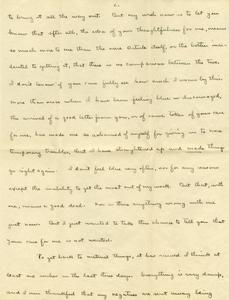 2.
to bring it all the way out. But my wish now is to let you
know that after all, the idea of your thoughtfulness for me, means
so much more to me than the mere article itself, or the bother
to getting it, that there is no comparison between the two.
I don't know if you fully see how much I mean by this
more than once when I have been feeling blue or discouraged,
the arrival of a good letter from you, or of some token of your care
for me, has made me so ashamed of myself for giving in to mere
temporary troubles, that I have straightened up and made things
go right again. I don't feel blue very often, nor for any reason
except the inability to get the most out of my work. But that, with
me, means a good deal. Nor is there anything wrong with me
just now. But I just wanted to take this chance to tell you that
your care for me is not wasted.
To get back to material things, it has rained I think at
least six inches in the last three days. Everything is very damp,
and I am thankful that my negatives are sent away being